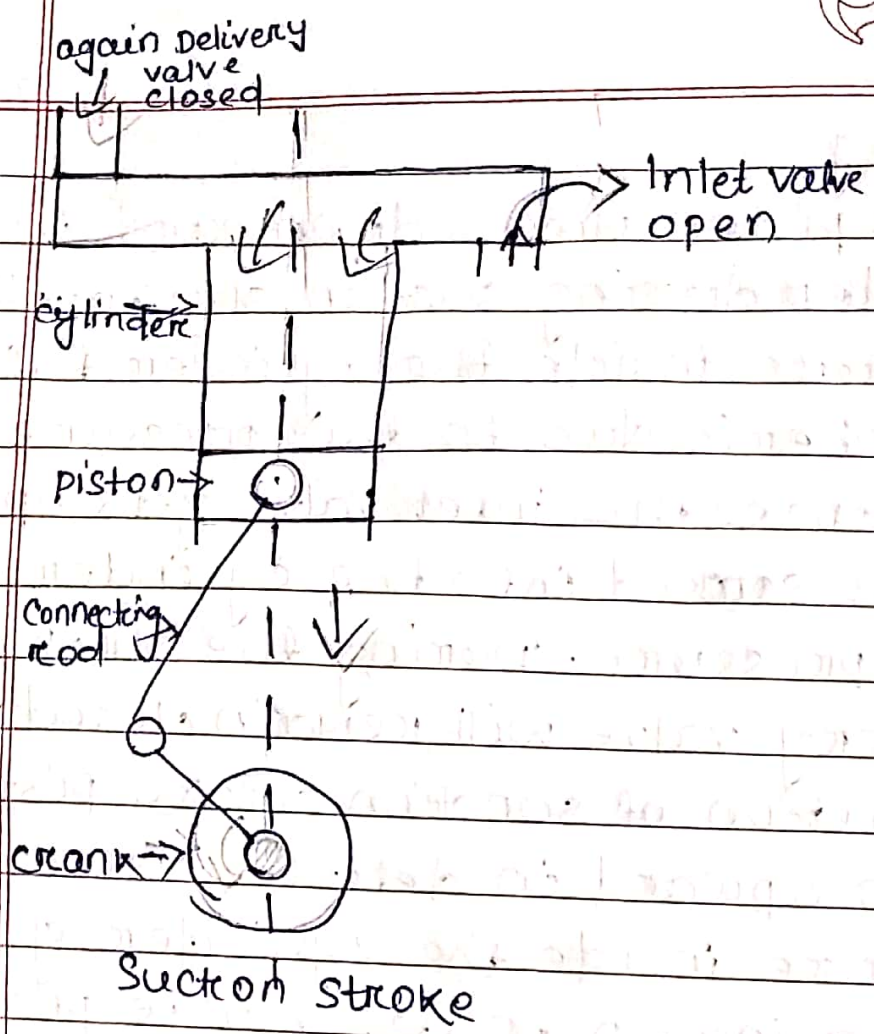 again Delivery
valve
closed
Inlet valve
open
cylinder
piston
connecting
rod
crank
Suction stroke